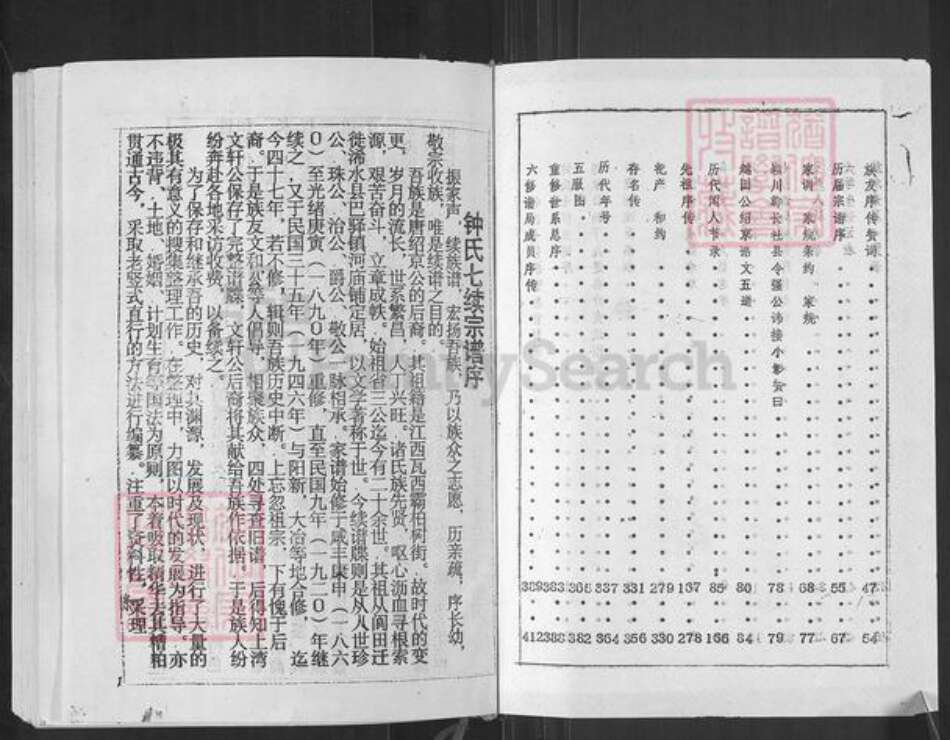 族友序传赞词 47 54
历届宗谱序 55 67
家训 家规条约 家统 68 77
颍川郡长社县令强公诗接小影赞曰 78 79
越国公绍京诰文五道 80 84
历代闻人节录 85 166
先祖序传 167 278
祀产 和约 279 330
存名传 331 356
历代年号 337 364
五服图 365 382
重修世系总序 383 388
六修谱局成员序传 389 412
钟氏七续宗谱序
振家声，续族谱，宏扬吾族，乃以族众之志愿，历亲疏，序长幼，
敬宗收族，唯是续谱之目的。
吾族是唐绍京公的后裔。其祖籍是江西瓦西霸柏树街。故时代的变
更，岁月的流长，世系繁昌，人丁兴旺。诸氏族先贤，呕心沥血寻根索
源，艰苦奋斗，立章成帙。始祖省三公迄今有二十余世。其祖从阆田迁
徙浠水县巴驿镇河庙铺定居，以文学著称于世。今续谱牒则是从从世珍
公、珠公、治公、爵公、敬公一脉相承。家谱始修于咸丰庚申（一八六
〇）至光绪庚寅（一八九〇年）重修，直至民国九年（一九二〇）年继
续之，又于民国三十五年（一九四六年）与阳新，大冶等地合修，迄
今四十七年，若不修，辑则吾族历史中断。上忘忽祖宗，下有愧于后
裔，于是族友文和公等人倡导，相聚族众，四处寻查旧谱，后得知上湾
文轩公保存了完整谱牒。文轩公后裔将其献给吾族作依据，于是族人纷
纷奔赴各地采访收费。以备续之。
为了保存和继承吾的历史，对其渊源，发展及现状，进行了大量的
极其有意义的搜集整理工作。在整理中，力图以时代的发展为指导。亦
不违背、土地、婚姻、计划生育等国法为原则，本着吸取精华去其糟粕
贯通古今，采取老竖式直行的方法进行编纂。注重了资料性，采理
1
FamilySearch